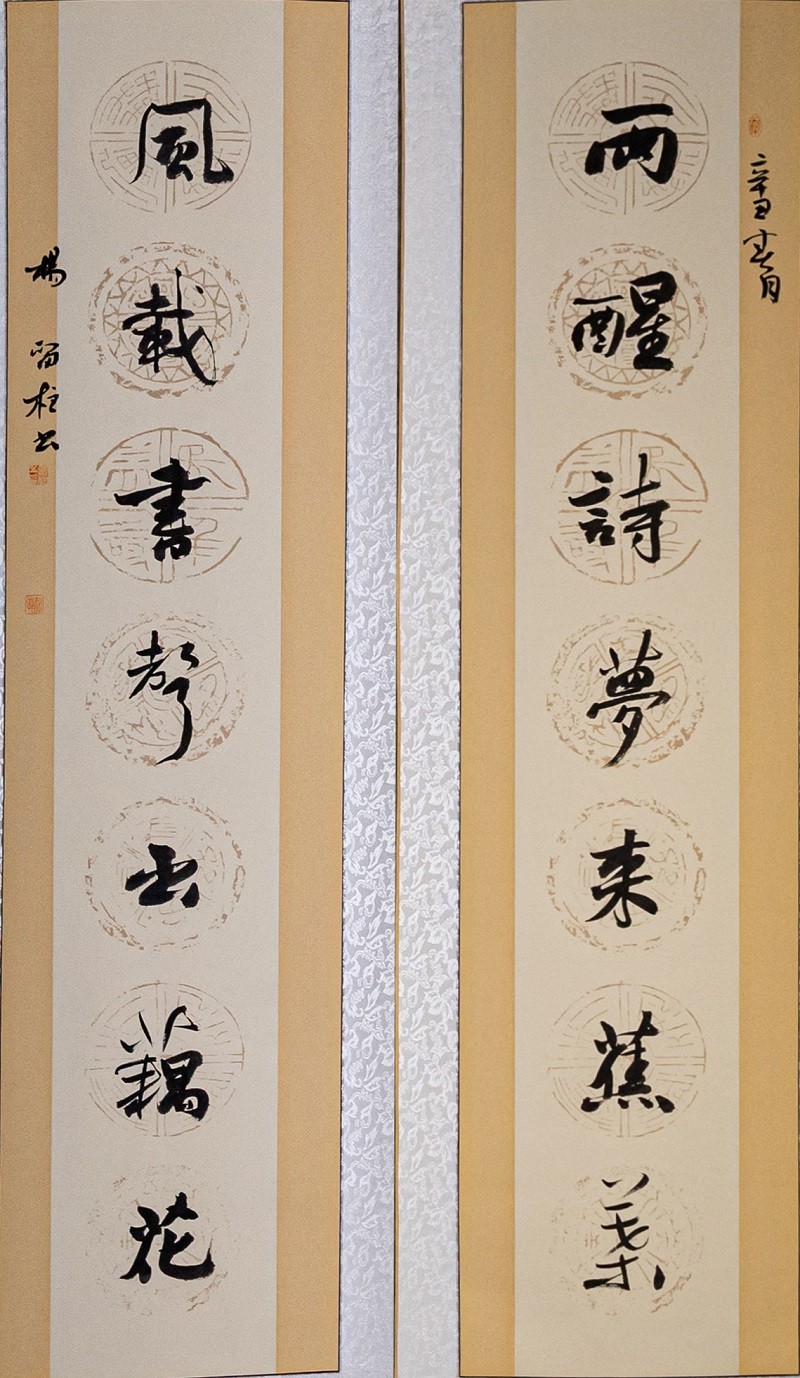 辛丑春月
雨醒詩夢来蕉葉
風載書聲出藕花
楊留柱书